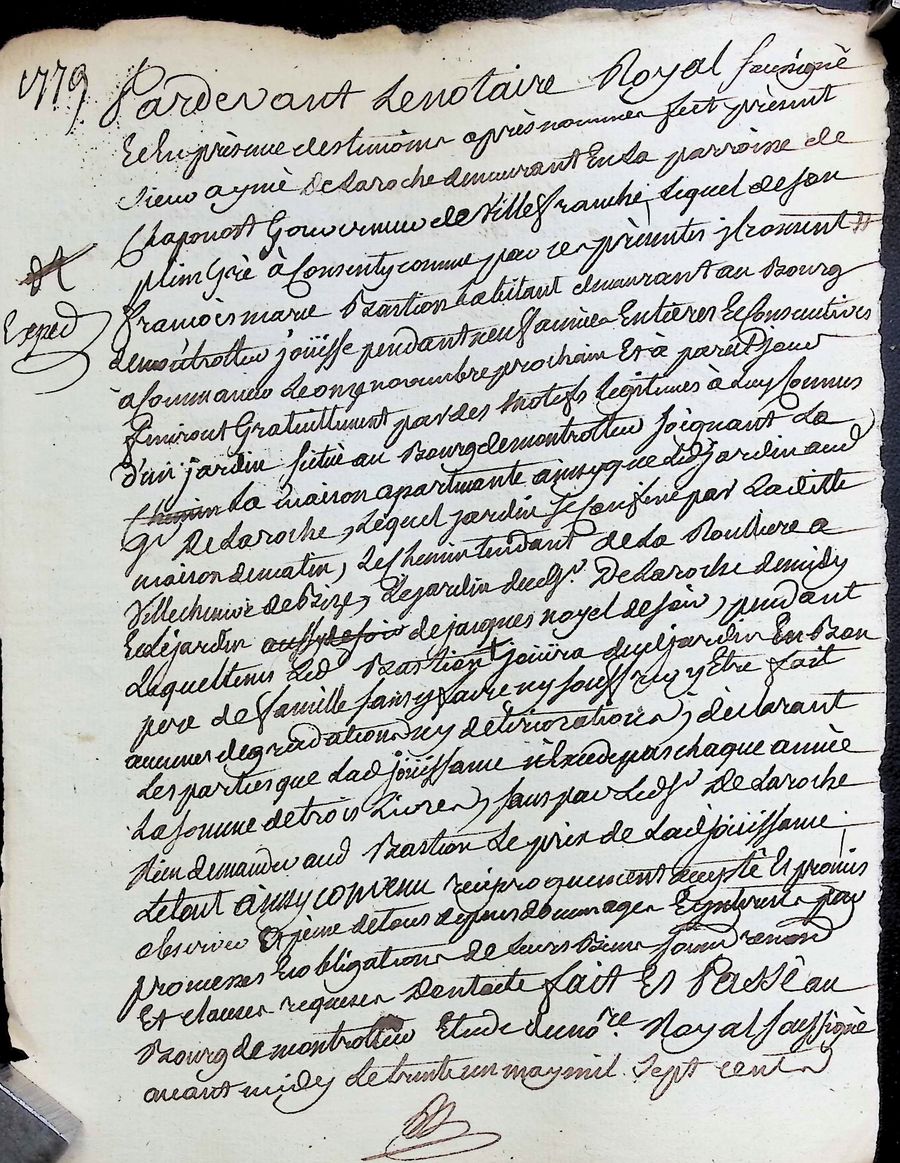 1779
Pardevant Lenotaire Royal soussigné
Et En présence des temoins après nommes fut présent
sieur aymé De Laroche demeurant En La parroisse de
Chaponost Gouverneur de Villefranche, Lequel de son
plein Gré à Consenty comme par ces présentes jl consent #
françois marie Bastion habitant demeurant au Bourg
demontrottier joüisse pendant neuf années Entieres Et Consecutives
à Commancer Le onze novembre prochain Et à pareil jour
finiront Gratuittement par des motifs Legitimes à Luy Connus
D'un jardin situé au Bourg de montrottier joignant La
Chemin La maison apartenante ainsy que Led. jardin aud.
Sr. De Laroche, Lequel jardin Se Confine par Laditte
maison de matin, Le Chemin tendant de La Routtiere a
Villechenève de Bize, Le jardin dud. Sr. De Laroche de midy
Et Le jardin aussy de soir de jacques noyel de soir, pendant
Lequel tems Led. Bastion joüira dud. jardin En Bon
pere de famille sans y faire ny souffrir y Etre fait
aucunes degradations ny deteriorations, déclarant
Les parties que Lad. joüissance n'Excede pas chaque année
La somme de trois Livres, sans par Led. Sr. De Laroche
Rien demander aud. Bastion Le prix de Lad. joüissance.
Le tout ainsy convenu réciproquement accepté Et promis
observer Et peine de tous depens dommages Et jnterets par
promesses Et obligations de Leurs Biens soumis renon
Et clauses requises Dont acte fait Et Passé au
Bourg de montrottier Etude du nore. Royal soussigné
avant midy Le trente un may mil sept cent
#
Exped